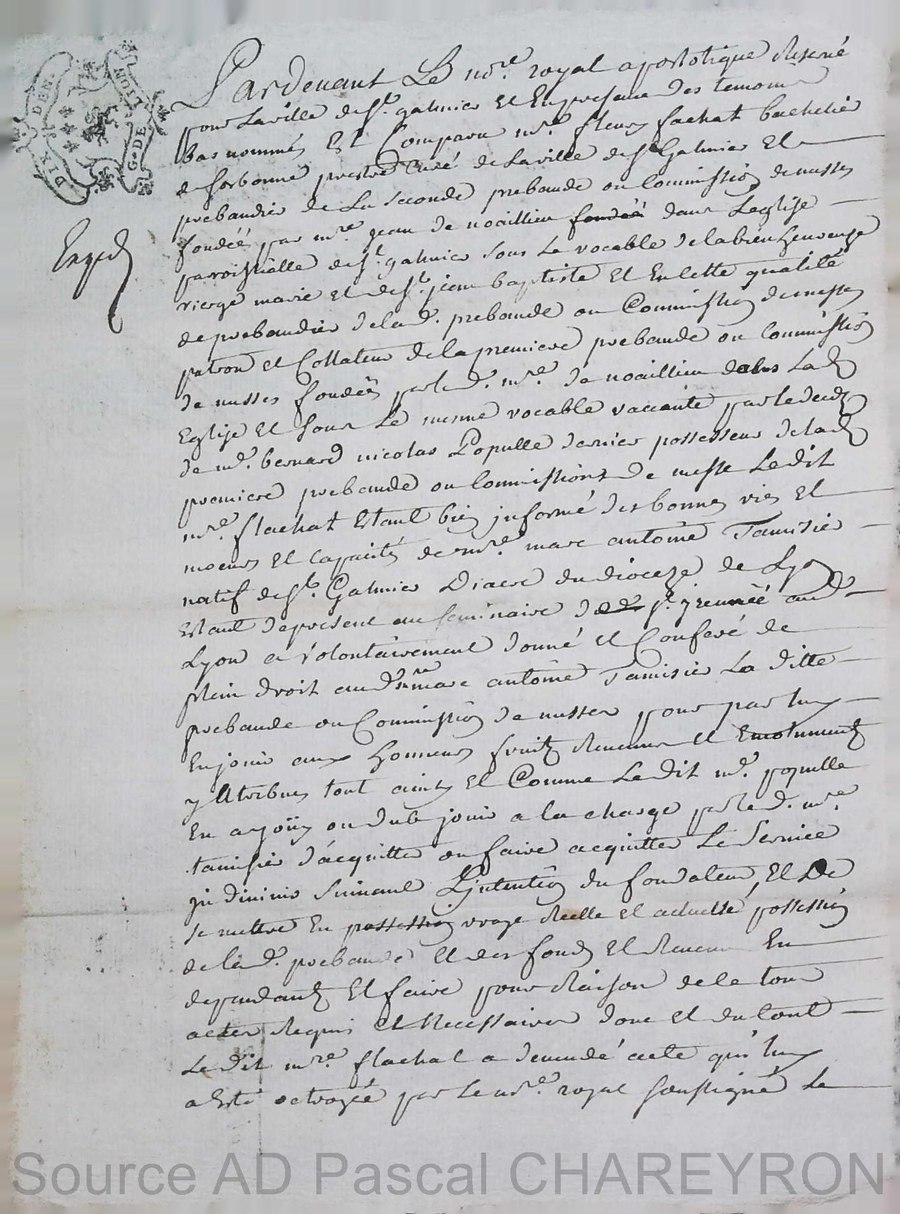 DIX DEN.
G. DE LION
Exped
Pardevant Le no.re royal apostolique Reservé
pour La ville de St. galmier Et En presence des temoins
bas nommés Est Comparu m.re fleury flachat bachelier
de sorbonne prestre Curé de La ville de St Galmier Et
prebandier de La seconde prebande ou Commission de messes
fondées par m.re jean de noaillieu fondée dans Leglise
parroissialle de St. galmier sous Le vocable de la bien heureuse
vierge marie et de St. jean baptiste Et En cette qualité
de prebandier de la d. prebande ou Commission de messes
patron et Collateur de la premiere prebande ou Commission
de messes fondées par le d. m.re de noaillieu dans La d
Eglise Et sous Le meme vocable vaccante par le deceds
de m.re bernard nicolas Populle dernier possesseur de la d
premiere prebande ou Commissions de messe Le dit
m.re flachat Estant bien jnformé des bonnes vies Et
moeurs Et capacités de m.re marc antoine Tamisier
natif de St. Galmier Diacre du dioceze de Lyon
Estant de present au seminaire de St. jrennée au d
Lyon a volontairement donné et Conferé de
plein droit au d. m.re marc antoine Tamisier La ditte
prebande ou Commission de messes pour par luy
En jouir aux honneurs fruits Revenus et Emoluments
y Atribues tout ainsy Et Comme Le dit m.re populle
En a jouy ou dub jouir a la charge par le d. m.re
tamisier d'acquitter ou faire acquitter Le Service
jn divinis suivant L'jntention du fondateur, Et De
se mettre En possession vraye Reelle et actuelle possession
de la d. prebande Et des fonds Et Revenus En
dependants Et faire pour Raison de ce tous
actes Requis et Necessaires dont et du tout
Le dit m.re flachat a demandé acte qui luy
a Esté octroyée par Le no.re royal soussigné Le
Source AD Pascal CHAREYRON